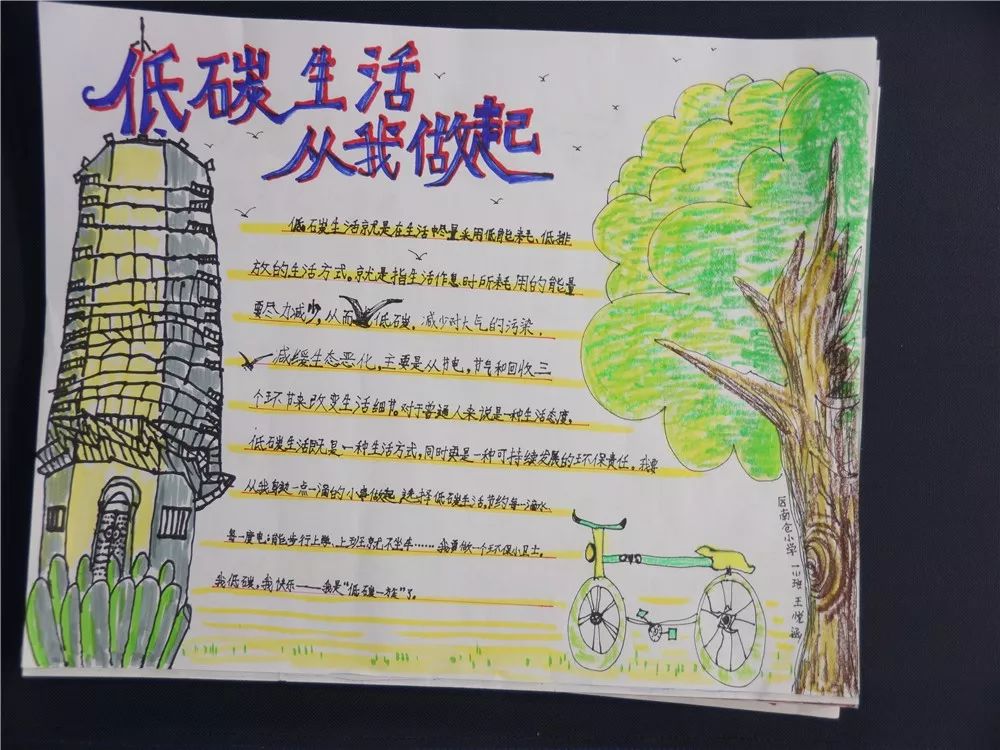 低碳生活
从我做起
低碳生活就是在生活中尽量采用低能耗、低排
放的生活方式。就是指生活作息时所耗用的能量
要尽力减少,从而低碳,减少对大气的污染.
减缓生态恶化,主要是从节电,节气和回收三
个环节来改变生活细节。对于普通人来说是一种生活态度,
低碳生活既是一种生活方式,同时更是一种可持续发展的环保责任。我要
从我身边一点一滴的小事做起,选择低碳生活,节约每一滴水.
每一度电;能步行上联,上到至就不坐车……我要做一个环保小卫士。
我低碳,我快乐——我是“低碳一族”了。
区南仓小学 一(2)班 王悦涵